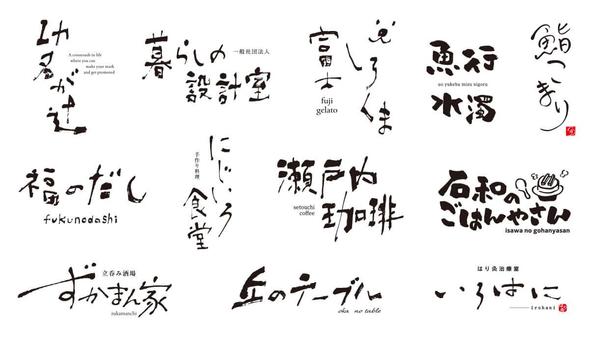 功名が辻
A crossroads in life
where you can
make your mark
and get promoted
暮らしの
設計室
一般社団法人
富士
しろくま
fuji
gelato
魚行
水濁
uo yukeba mizu nigoru
鮨
つきり
福のだし
fukunodashi
手作り料理
にじいろ
食堂
瀬戸内
珈琲
setouchi
coffee
石和の
ごはんやさん
isawa no gohanyasan
立呑み酒場
ずかまん家
zukamanchi
丘のテーブル
oka no table
はり灸治療室
いろはに
irohani